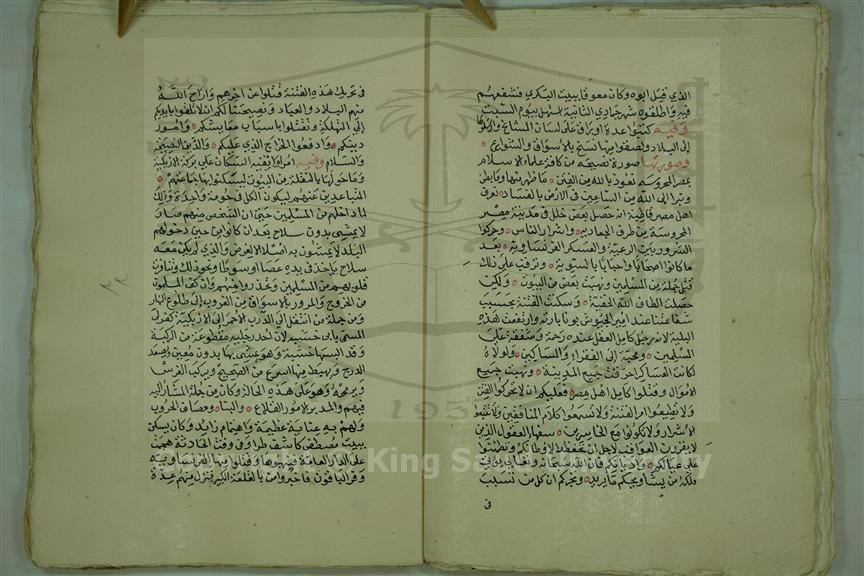 الذي قبل ابوه وكان معوقا ببيت البكري فشفعهم
فيه واطلقوه شهر جمادي الثانية استهل بيوم السبت
وفيه كتبوا عدة اوراق على لسان المشايخ وارسلوها
الى البلاد والصقوا منها نسخ بالاسواق والشوارع
وصورتها صورة نصيحة من كافة علماء الاسلام
بمصر المحروسه نعوذ بالله من الفتن ما ظهر منها وما بطن
ونبرا الى الله من الساعين في الارض بالفساد نعرف
اهل مصر قاطبة انه حصل بعض خلل في مدينة مصر
المحروسة من طرف الجعادية واشرار الناس وحركوا
الشرور بين الرعية والعسكر الفرنساوية بعد
ما كانوا اصحابا واحبابا بالسوية وترتب على ذلك
قتل جملة من المسلمين ونهبت بعض من البيوت ولكن
حصلت الطاف الله الخفية وسكنت الفتنة بحسب
شفاعتنا عند امير الجيوش بونابارته وارتفعت هذه
البلية لانه رجل كامل العقل عنده رحمة وشفقة على
المسلمين ومحبة الى الفقراء والمساكين ولولاه
كانت العساكر احرقت جميع المدينة ونهبت جميع
الاموال وقتلوا كامل اهل مصر فعليكم ان لا تحركوا الفتن
ولا تطيعوا امر الفتنة ولا تسمعوا كلام المنافقين ولا تتبعوا
الاشرار ولا تكونوا مع الخاسرين سفهاء العقول الذين
لا يقرون العواقب لاجل ان تحفظوا اوطانكم وتطمئنوا
على عيالكم واديانكم فان الله سبحانه وتعالى يوتي
ملكه من يشا ويحكم ما يريد ونخبركم ان كل من تسبب
في
في تحريك هذه الفتنة قتلوا عن اخرهم واراح الله
منهم البلاد والعباد ونصيحتنا لكم ان لا تلقوا بايديكم
الى التهلكة وتشتغلوا باسباب معايشكم وامور
دينكم وادفعوا الخراج الذي عليكم والدين النصيحة
والسلام وفيه امروا بقية السكان على بركة الازبكية
وما حولها بالنقلة من البيوت ليسكنوا بها جماعتهم
المتباعدين عنهم ليكون الكل في حومة واحدة وذلك
لما داخلهم من المسلمين حتى ان الشخص منهم صار
لا يمشي بدون سلاح بعد ان كانوا من حين دخولهم
البلد لا يمشون به اصلا الا لغرض والذي لم يكن معه
سلاح ياخذ في يده عصا او سوطا ونحو ذلك وتنافرت
قلوبهم من المسلمين وتحذروا منهم وانكف المسلمون
من الخروج والمرور بالاسواق من الغروب الى طلوع النهار
ومن جملة من انتقل الى الدرب الاحمر الى الازبكية كفرلي
المسمى بابي خشبه لان احد رجليه مقطوعة من الركبة
وقد البسها خشبة وهو يمشي بها بدون معين ويصعد
الدرج ويهبط منها اسرع من الصحيح ويركب الفرس
ويرمحه وهو على هذه الحالة وكان من جملة المشار اليه
فيهم والمدبر لامور القلاع والبنا وصفاف الحروب
ولهم به عناية عظيمة واهتمام زايد وكان يسكن
ببيت مصطفى كاشف طرا وفي وقت الحادثة هجمت
على الدار العامة ونهبوها وقتلوا منها الفرنساوية
وفر الباقون فاخبروا من بالقلعة الكبيرة فنزل منهم عدة
Copyright © King Saud University
195